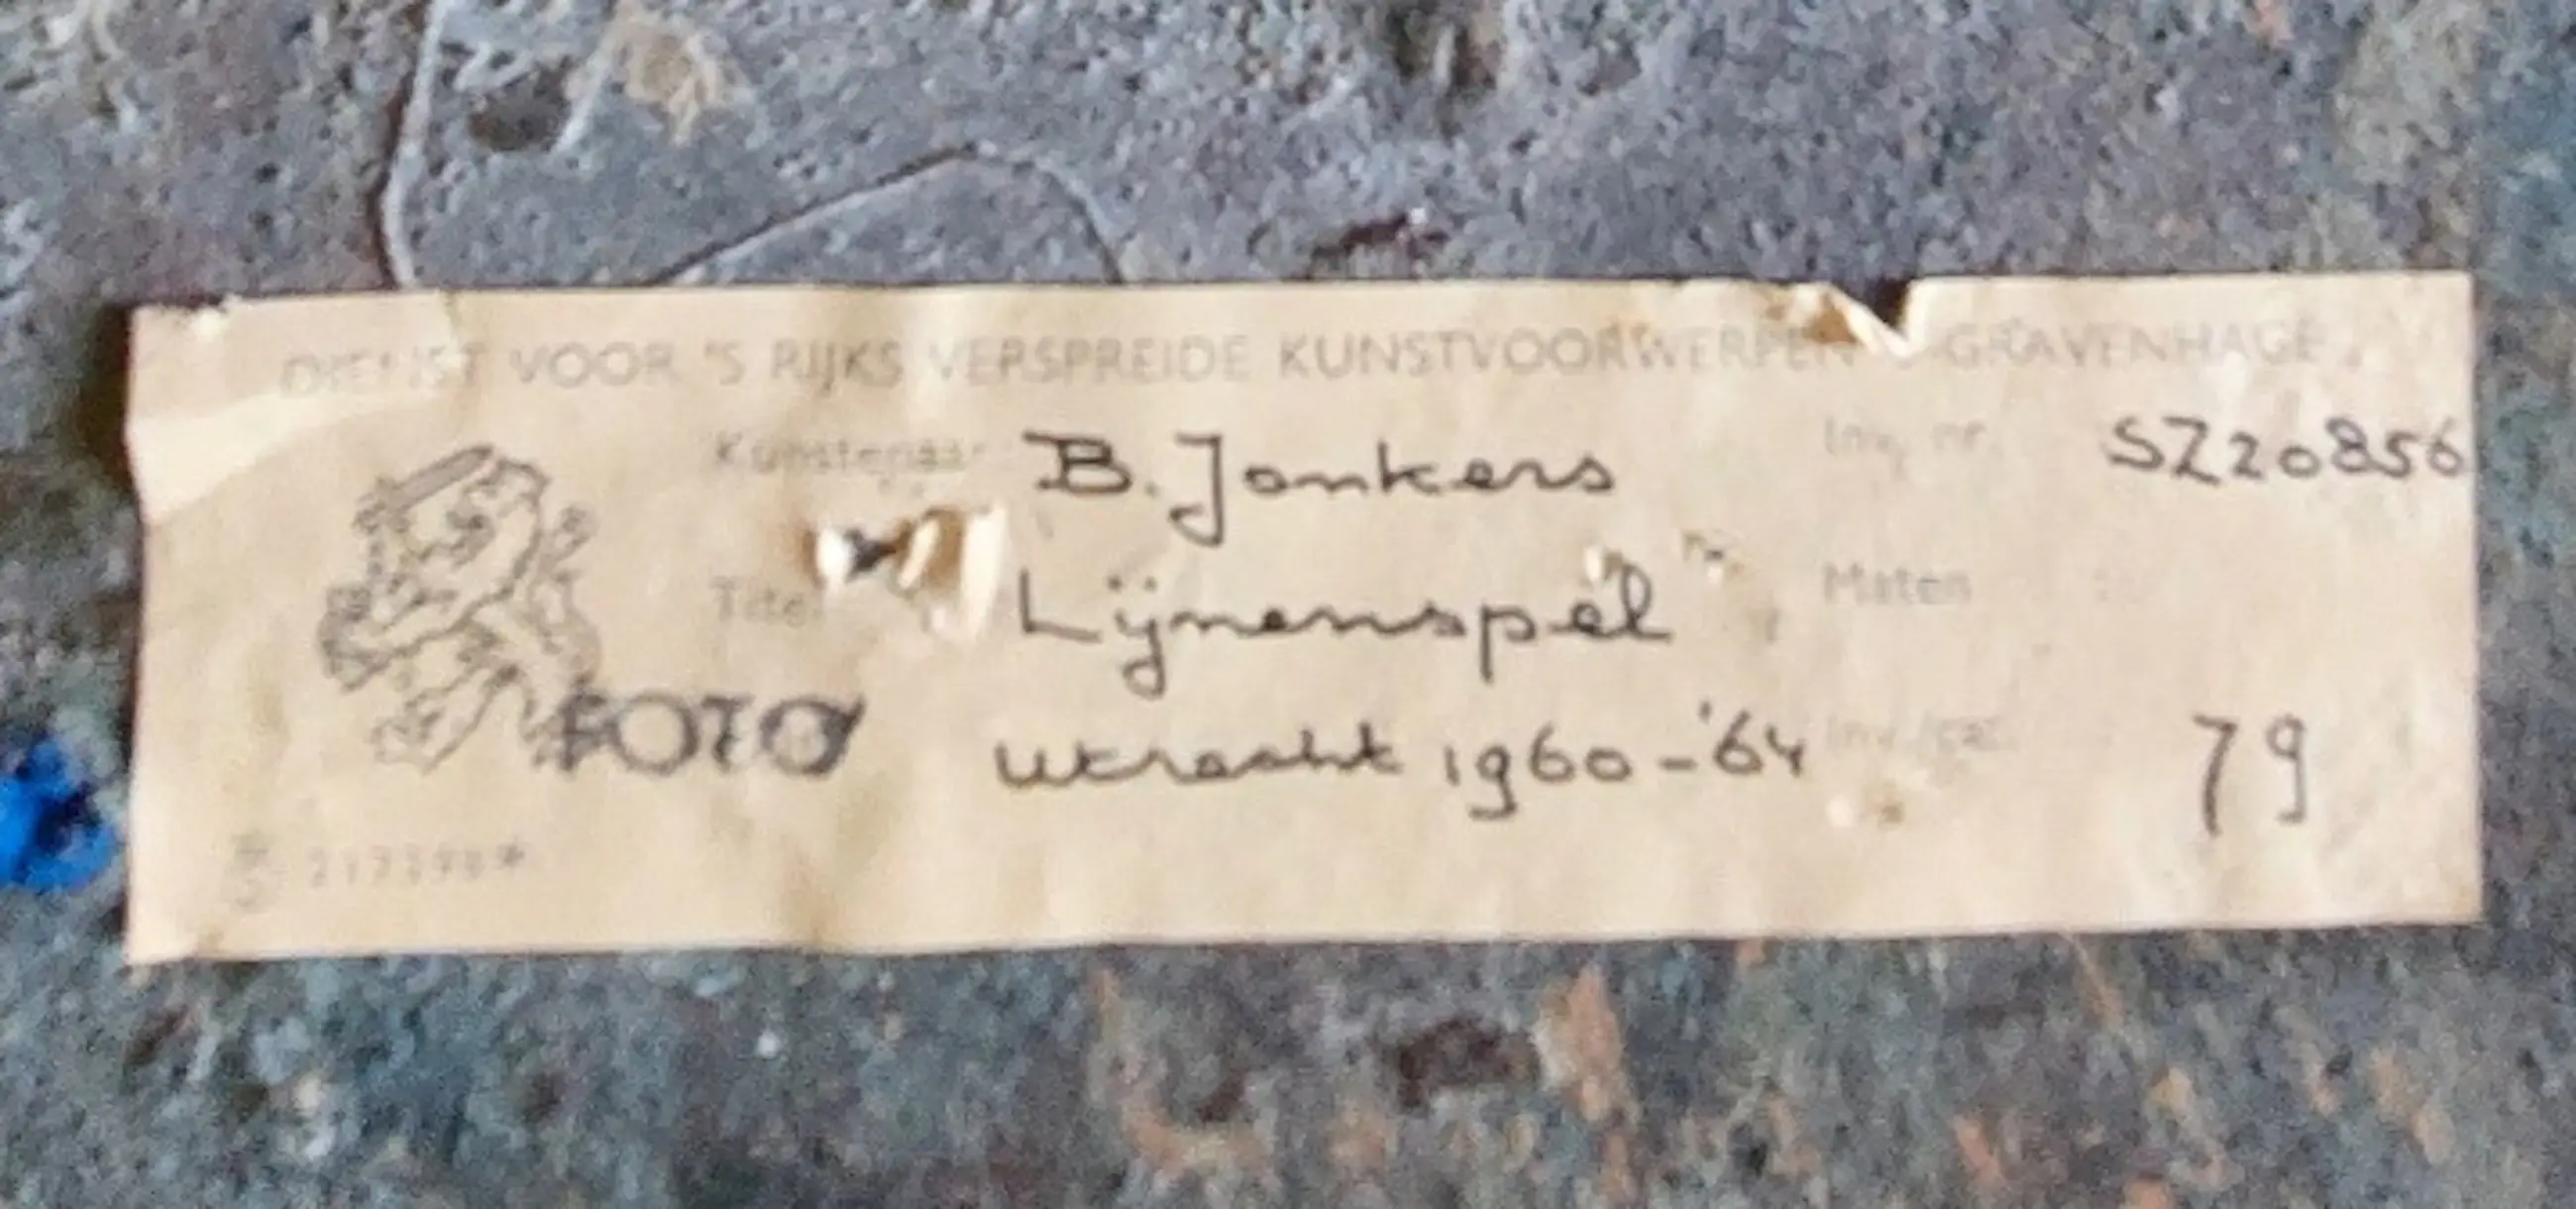 DIENST VOOR 'S RIJKS VERSPREIDE KUNSTVOORWERPEN 'S GRAVENHAGE
Kunstenaar B. Jonkers Inv. nr. SZ20856
Titel Lijnenspel Maten
FOTO Utrecht 1960-'64 Inv./cat. 79